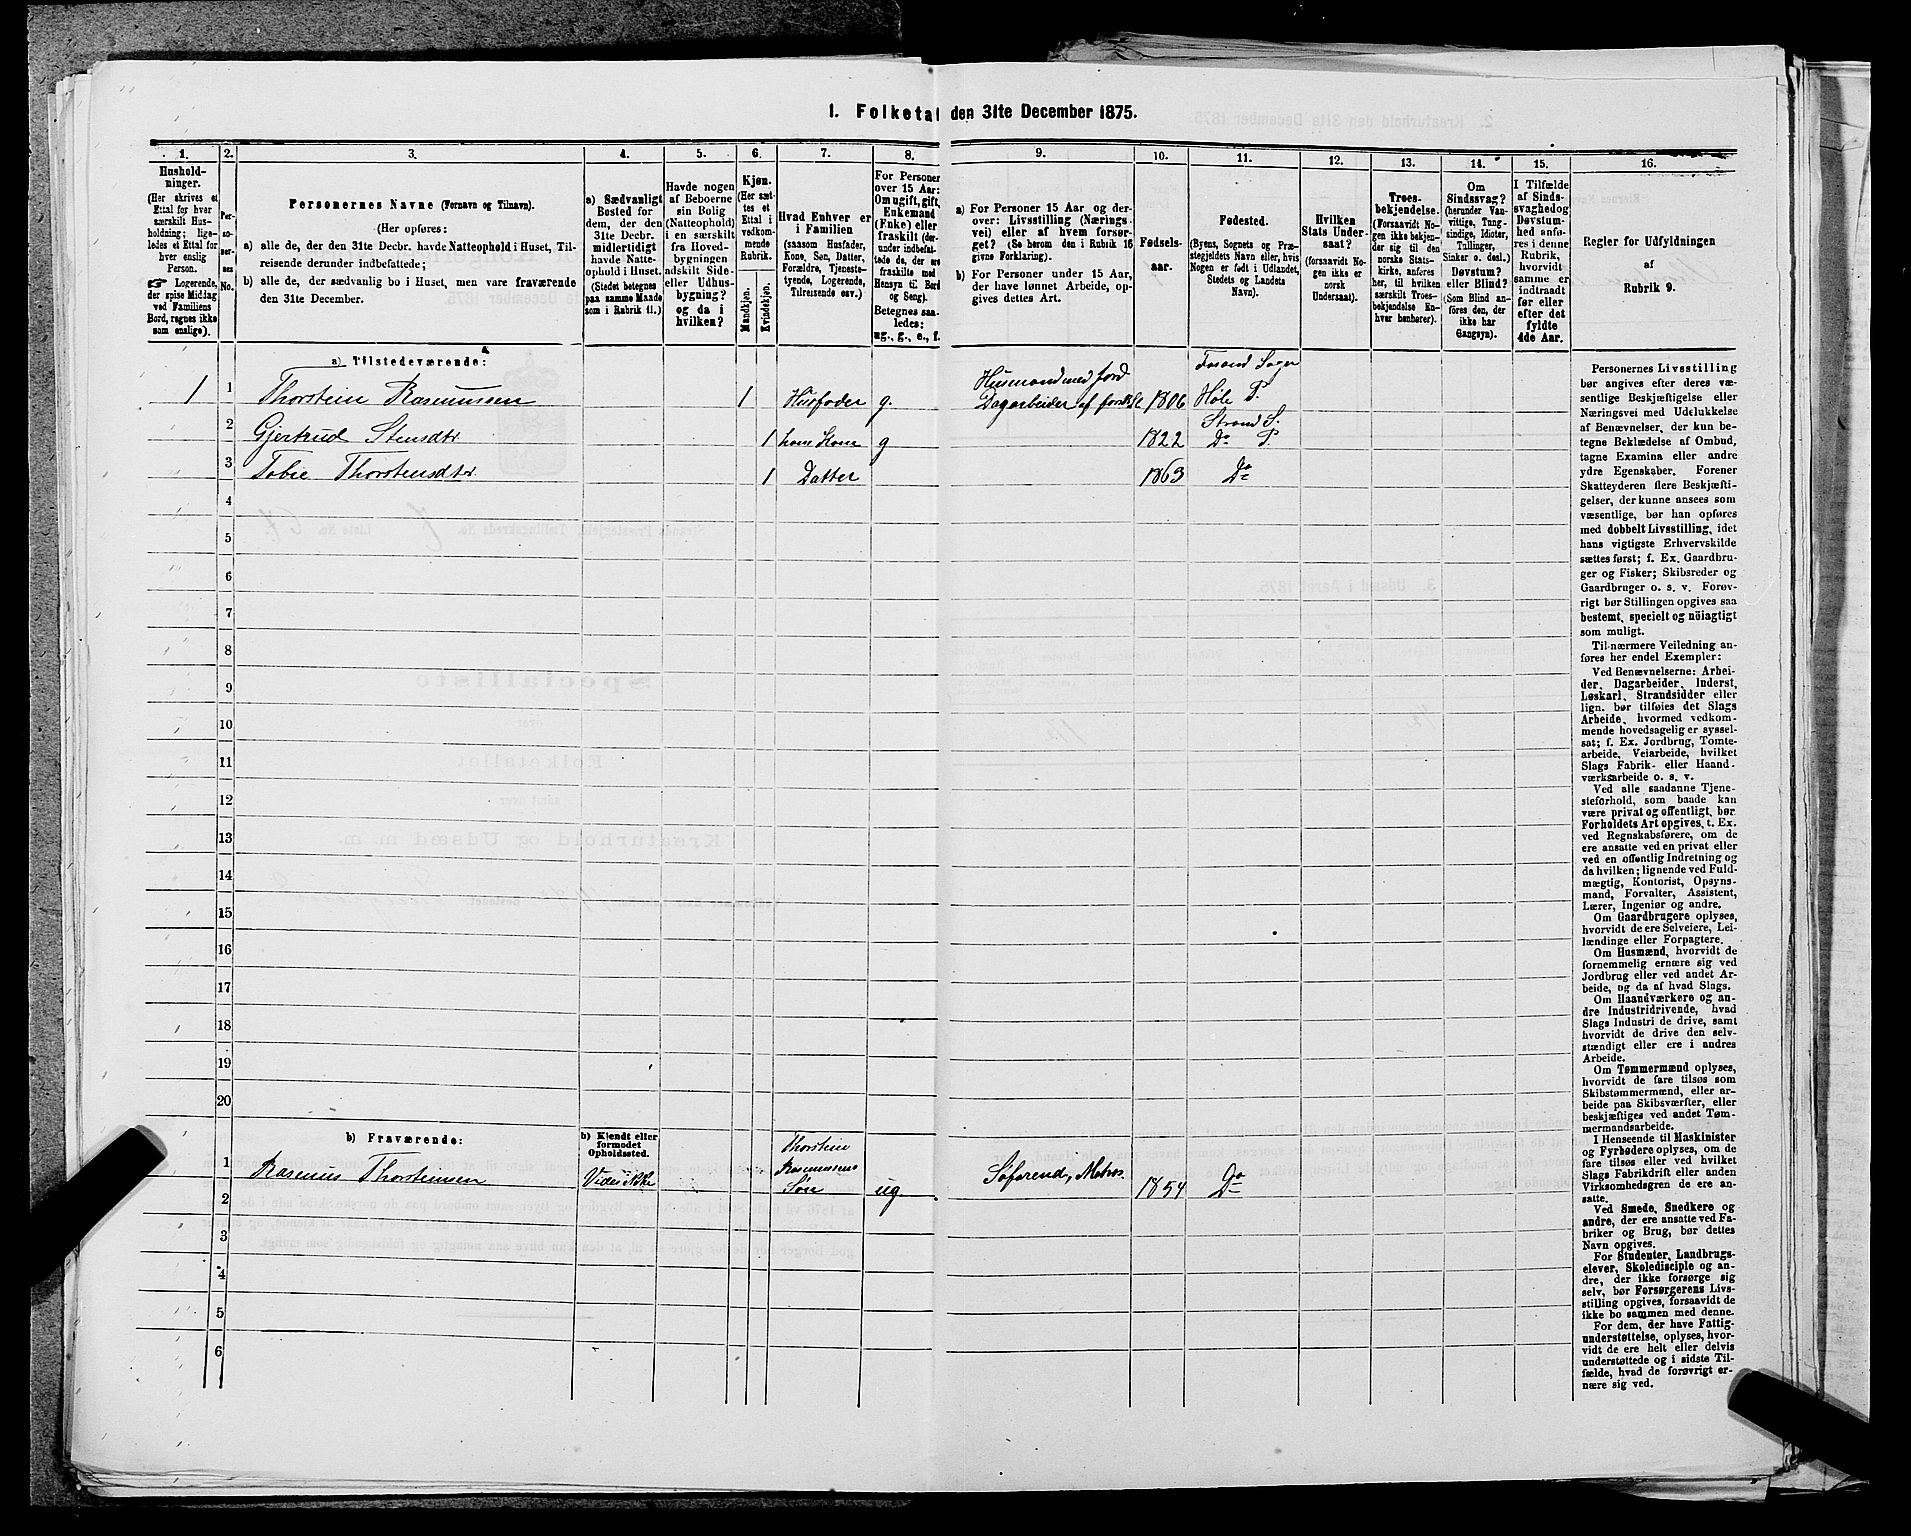 1. Folketal den 31te December 1875.
1. 2. 3. 4. 5. 6. 7. 8. 9. 10. 11. 12. 13. 14. 15. 16.
Husholdninger.
(Her skrives et Ettal for hver særskilt Husholdning; ligeledes et Ettal for hver enslig Person.
☛ Logerende, der spise Middag ved Familiens Bord, regnes ikke som enslige).
Personernes No.
Personernes Navne (Fornavn og Tilnavn).
(Her opføres:
a) alle de, der den 31te Decbr. havde Natteophold i Huset, Tilreisende derunder indbefattede;
b) alle de, der sædvanlig bo i Huset, men vare fraværende den 31te December.
a) Sædvanligt Bosted for dem, der den 31te Decbr. midlertidigt havde Natteophold i Huset. (Stedet betegnes paa samme Maade som i Rubrik 11.)
Havde nogen af Beboerne sin Bolig (Natteophold) i en særskilt fra Hovedbygningen adskilt Side- eller Udhusbygning? og da i hvilken?
Kjøn. (Her sættes et Ettal i vedkommende Rubrik.
Mandkjøn. Kvindekjøn.
Hvad Enhver er i Familien (saasom Husfader, Kone, Søn, Datter, Forældre, Tjenestetyende, Logerende, Tilreisende osv.)
For Personer over 15 Aar: Om ugift, gift, Enkemand (Enke) eller fraskilt (derunder indbefattede de, der ere fraskilte med Hensyn til Bord og Seng). Betegnes saaledes: ug., g., e., f.
a) For Personer 15 Aar og derover: Livsstilling (Næringsvei) eller af hvem forsørget? (Se herom den i Rubrik 16 givne Forklaring).
b) For Personer under 15 Aar, der have lønnet Arbeide, opgives dettes Art.
Fødselsaar.
Fødested.
(Byens, Sognets og Præstegjeldets Navn eller, hvis Nogen er født i Udlandet, Stedets og Landets Navn).
Hvilken Stats Undersaat?
(forsaavidt Nogen ikke er norsk Undersaat).
Troesbekjendelse.
(Forsaavidt Nogen ikke bekjender sig til den norske Statskirke, anføres her, til hvilken særskilt Troesbekjendelse Enhver henhører).
Om Sindssvag? (herunder Vanvittige, Tungsindige, Idioter, Tullinger, Sinker o. desl.) Døvstum? eller Blind? (Som Blind anføres den, der ikke har Gangsyn).
I Tilfælde af Sindssvaghed og Døvstumhed anføres i denne Rubrik, hvorvidt samme er indtraadt før eller efter det fyldte 4de Aar.
Regler for Udfyldningen
af
Rubrik 9.
a) Tilstedeværende:
Husmand med Jord Forsand Sogn
1 1 Thorstein Rasmussen 1 Husfader g. Dagarbeider 1806 Høle P.
Strand S.
2 Gjertrud Stensdtr. 1 hans Kone g 1822 Do P
3 Tobie Thorstensdtr. 1 Datter 1863 Do
4
5
6
7
8
9
10
11
12
13
14
15
16
17
18
19
20
b) Fraværende:
b) Kjendt eller formodet Opholdssted.
Thorstein
1 Rasmus Thorstensen Vides ikke Rasmussens Søn ug. Søfarend, Matros. 1854 Do
2
3
4
5
6
Personernes Livsstilling bør angives efter deres væsentlige Beskjæftigelse eller Næringsvei med Udelukkelse af Benævnelser, der kun betegne Beklædelse af Ombud, tagne Examina eller andre ydre Egenskaber. Forener Skatteyderen flere Beskjæftigelser, der kunne ansees som væsentlige, bør han opføres med dobbelt Livsstilling, idet hans vigtigste Erhvervskilde sættes først; f. Ex. Gaardbruger og Fisker; Skibsreder og Gaardbruger o. s. v. Forøvrigt bør Stillingen opgives saa bestemt, specielt og nöiagtigt som muligt.
Til nærmere Veiledning anføres her endel Exempler:
Ved Benævnelserne: Arbeider, Dagarbeider, Inderst, Løskarl, Strandsidder eller lign. bør tilføies det Slags Arbeide, hvormed vedkommende hovedsagelig er sysselsat; f. Ex. Jordbrug, Tomtearbeide, Veiarbeide, hvilket Slags Fabrik- eller Haandværksarbeide o. s. v.
Ved alle saadanne Tjenesteforhold, som baade kan være privat og offentligt, bør Forholdets Art opgives, t. Ex. ved Regnskabsførere, om de ere ansatte ved en privat eller ved en offentlig Indretning og da hvilken; lignende ved Fuldmægtig, Kontorist, Opsynsmand, Forvalter, Assistent, Lærer, Ingeniør og andre.
Om Gaardbrugere oplyses, hvorvidt de ere Selveiere, Leilændinge eller Forpagtere.
Om Husmænd, hvorvidt de fornemmelig ernære sig ved Jordbrug eller ved andet Arbeide, og da af hvad Slags.
Om Haandværkere og andre Industridrivende, hvad Slags Industri de drive, samt hvorvidt de drive den selvstændigt eller ere i andres Arbeide.
Om Tømmermænd oplyses, hvorvidt de fare tilsøs som Skibstømmermænd, eller arbeide paa Skibsværfter, eller beskjæftiges ved andet Tømmermandsarbeide.
I Henseende til Maskinister og Fyrbødere oplyses, om de fare tilsøs eller ved hvilket Slags Fabrikdrift eller anden Virksomhedsgren de ere ansatte.
Ved Smede, Snedkere og andre, der ere ansatte ved Fabriker og Brug, bør dettes Navn opgives.
For Studenter, Landbrugselever, Skoledisciple og andre, der ikke forsørge sig selv, bør Forsørgerens Livsstilling opgives, forsaavidt de ikke bo sammen med denne.
For dem, der have Fattigunderstøttelse, oplyses, hvorvidt de ere helt eller delvis understøttede og i sidste Tilfælde, hvad de forøvrigt ernære sig ved.